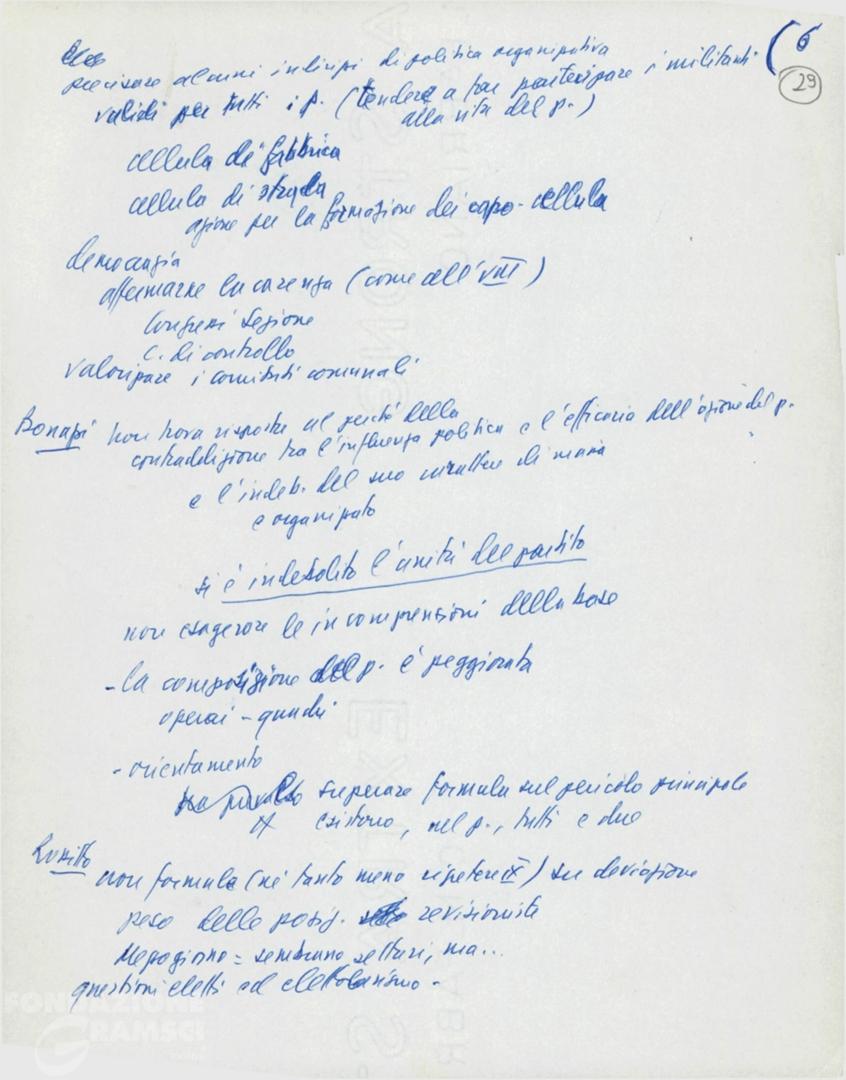 (6
29
precisare alcuni indirizzi di politica organizzativa
validi per tutti i p. (tendere a far partecipare i militanti
alla vita del p.)
cellula di fabbrica
cellula di strada
azione per la formazione dei capo-cellula
democrazia
affermarne la carenza (come all'VIII)
Congressi Sezione
C. di controllo
valorizzare i comitati comunali
Bonazzi non trova risposta al perché della
contraddizione tra l'influenza politica e l'efficacia dell'azione del p.
e l'indeb. del suo carattere di massa
e organizzato
si è indebolita l'unità del partito
non esagerare le incomprensioni della base
- la composizione del p. è peggiorata
operai - quadri
- orientamento
superare formula sul pericolo principale
esistono, nel p., tutti e due
non formula (né tanto meno ripetere IX) su deviazione
peso delle posiz. revisioniste
Mezzogiorno = sembrano settari, ma...
questioni eletti ed elettoralismo -
FONDAZIONE
GRAMSCI